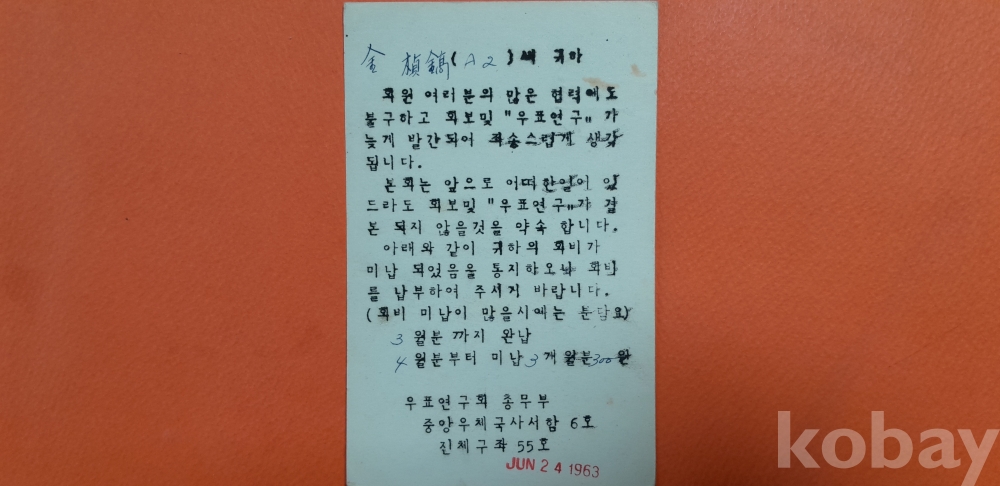 金 楨鎬(A2)씨 귀하
회원 여러분의 많은 협력에도
불구하고 회보및 "우표연구" 가
늦게 발간되어 죄송스럽게 생각
됩니다.
본회는 앞으로 어떠한일이 있
드라도 회보및 "우표연구"가 결
본 되지 않을것을 약속 합니다.
아래와 같이 귀하의 회비가
미납 되었음을 통지하오니 회비
를 납부하여 주시기 바랍니다.
(회비 미납이 많을시에는 분담요)
3 월분 까지 완납
4 월분부터 미납 3 개 월분 300 원
우표연구회 총무부
중앙우체국사서함 6호
진체구좌 55호
JUN 24 1963
kobay